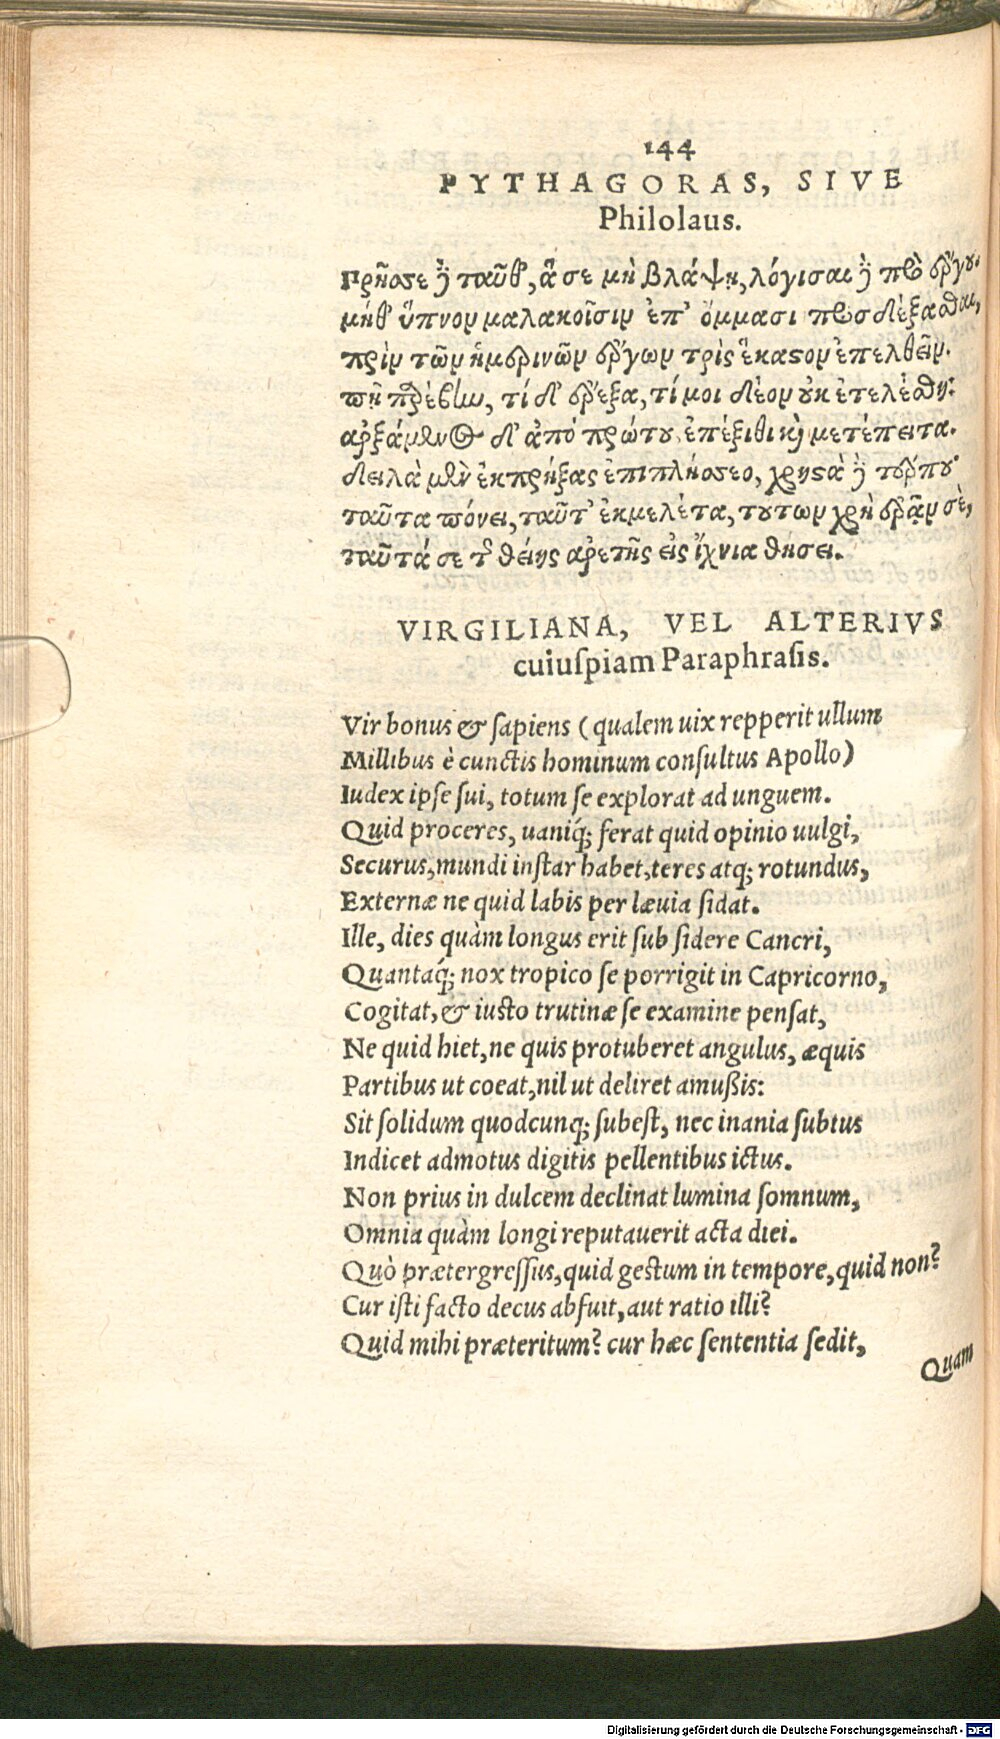 144
PYTHAGORAS, SIVE
Philolaus.
Πρῆσσε ἢ ταῦθ', ἅ σε μὴ βλάψῃ, λόγισαι ἢ πρὸ ἔργου.
μήθ' ὕπνον μαλακοῖσιν ἐπ' ὄμμασι προσδέξασθαι,
πρὶν τῶν ἡμερινῶν ἔργων τρὶς ἕκαστον ἐπελθεῖν.
πῆ παρέβην, τί δ' ἔρεξα, τί μοι δέον οὐκ ἐτελέσθη;
ἀρξάμενος δ' ἀπὸ πρώτου ἐπέξιθι καὶ μετέπειτα.
δειλὰ μὲν ἐκπρήξας ἐπιπλήσσεο, χρηστὰ ἢ τέρπου
ταῦτα πόνει, ταῦτ' ἐκμελέτα, τούτων χρὴ ἐρᾷν σὲ,
ταῦτά σε τῆς θείης ἀρετῆς εἰς ἴχνια θήσει.
VIRGILIANA, VEL ALTERIVS
cuiuſpiam Paraphraſis.
Vir bonus & ſapiens (qualem uix repperit ullum
Millibus è cunctis hominum conſultus Apollo)
Iudex ipſe ſui, totum ſe explorat ad unguem.
Quid proceres, uaniq́; ferat quid opinio uulgi,
Securus, mundi inſtar habet, teres atq; rotundus,
Externæ ne quid labis per læuia ſidat.
Ille, dies quàm longus erit ſub ſidere Cancri,
Quantaq́; nox tropico ſe porrigit in Capricorno,
Cogitat, & iuſto trutinæ ſe examine penſat,
Ne quid hiet, ne quis protuberet angulus, æquis
Partibus ut coeat, nil ut deliret amußis:
Sit ſolidum quodcunq; ſubeſt, nec inania ſubtus
Indicet admotus digitis pellentibus ictus.
Non prius in dulcem declinat lumina ſomnum,
Omnia quàm longi reputauerit acta diei.
Quò prætergreſſus, quid geſtum in tempore, quid non?
Cur iſti facto decus abfuit, aut ratio illi?
Quid mihi præteritum? cur hæc ſententia ſedit,
Quam
Digitalisierung gefördert durch die Deutsche Forschungsgemeinschaft - DFG